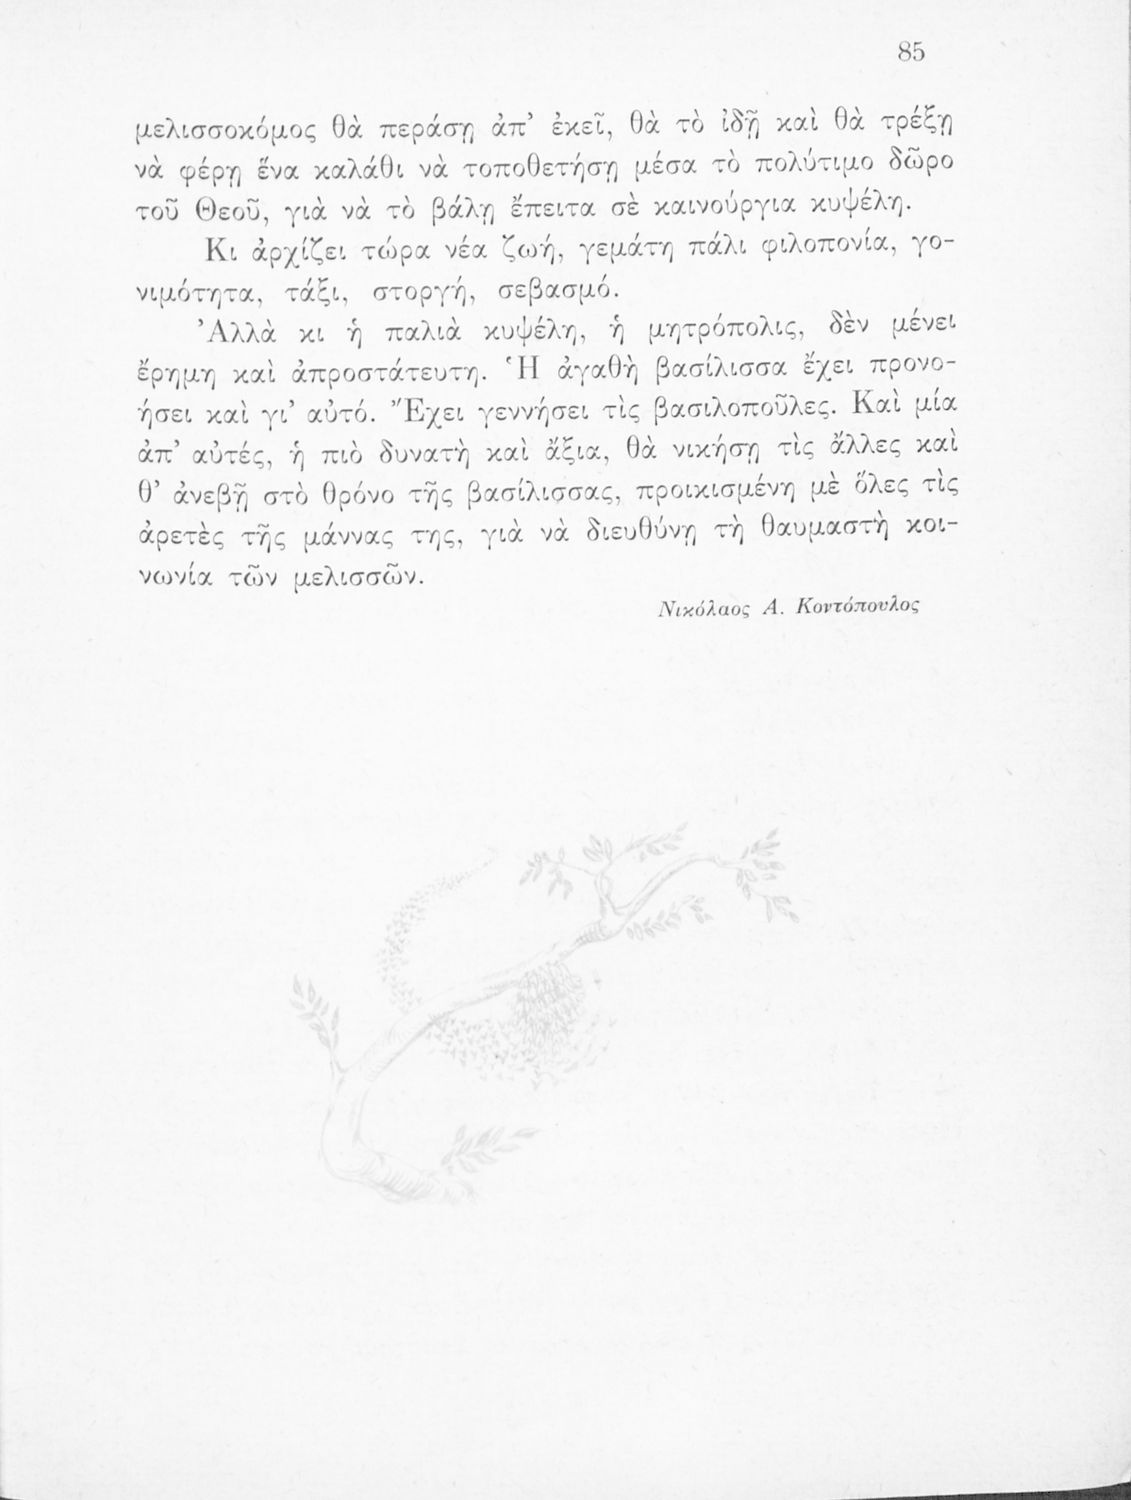 85
μελισσοκόμος θὰ περάσῃ ἀπ’ ἐκεῖ, θὰ τὸ ἰδῇ καὶ θὰ τρέξῃ
νὰ φέρῃ ἕνα καλάθι νὰ τοποθετήσῃ μέσα τὸ πολύτιμο δῶρο
τοῦ Θεοῦ, γιὰ νὰ τὸ βάλῃ ἔπειτα σὲ καινούργια κυψέλη.
Κι ἀρχίζει τώρα νέα ζωή, γεμάτη πάλι φιλοπονία, γο-
νιμότητα, τάξι, στοργή, σεβασμό.
Ἀλλὰ κι ἡ παλιὰ κυψέλη, ἡ μητρόπολις, δὲν μένει
ἔρημη καὶ ἀπροστάτευτη. Ἡ ἀγαθὴ βασίλισσα ἔχει προνο-
ήσει καὶ γι’ αὐτό. Ἔχει γεννήσει τὶς βασιλοποῦλες. Καὶ μία
ἀπ’ αὐτές, ἡ πιὸ δυνατὴ καὶ ἄξια, θὰ νικήσῃ τὶς ἄλλες καὶ
θ’ ἀνεβῇ στὸ θρόνο τῆς βασίλισσας, προικισμένη μὲ ὅλες τὶς
ἀρετὲς τῆς μάννας της, γιὰ νὰ διευθύνῃ τὴ θαυμαστὴ κοι-
νωνία τῶν μελισσῶν.
Νικόλαος Α. Κοντόπουλος